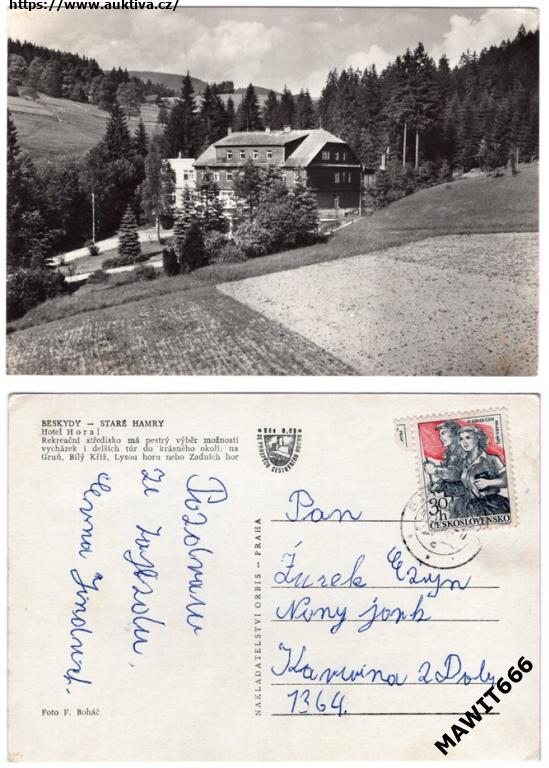 https://www.auktiva.cz/
BESKYDY — STARÉ HAMRY
Hotel Horal
Rekreační středisko má pestrý výběr možností
vycházek i delších túr do krásného okolí: na
Gruň, Bílý Kříž, Lysou horu nebo Zadních hor
Kčs 0,60
30
h
ČESKOSLOVENSKO
Pozdravu
ze
NAKLADATELSTVÍ ORBIS — PRAHA
Pan
Żurek
Nony
Karvina 2 Doly
1364.
Foto F. Boháč
MAWIT666